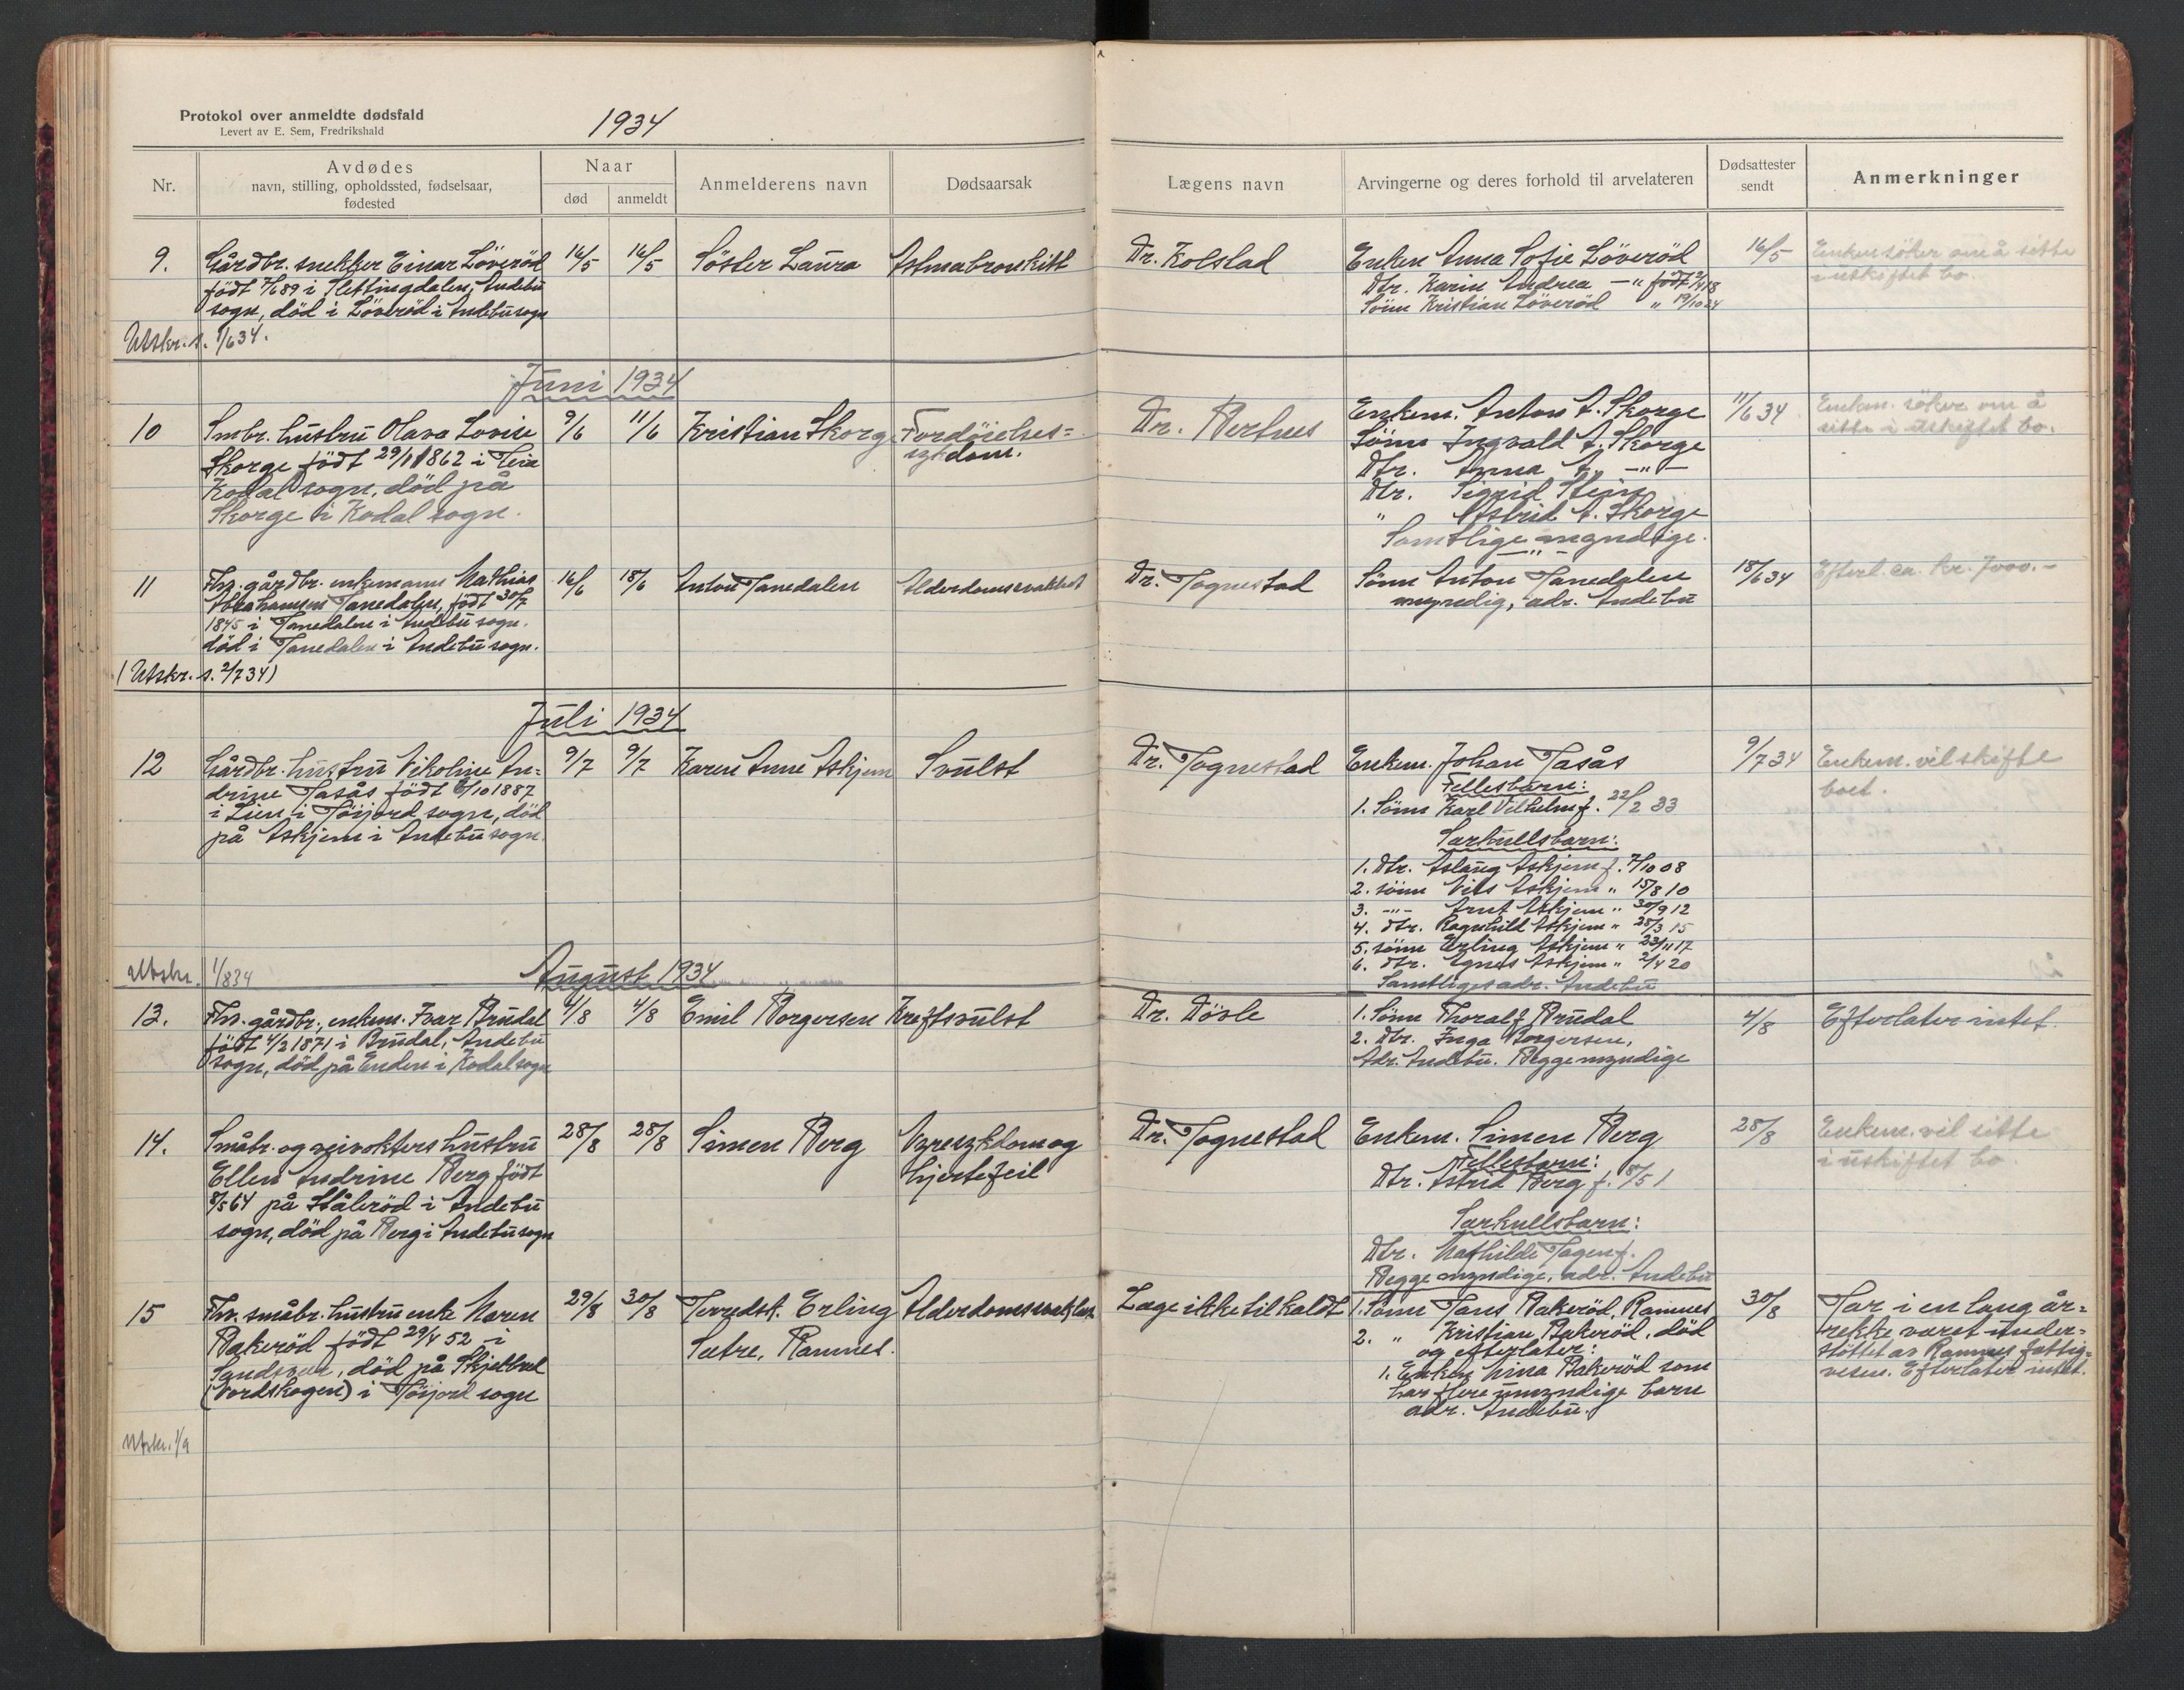 Protokol over anmeldte dødsfald
Levert av E. Sem, Fredrikshald
1934
Nr.
Avdødes
navn, stilling, opholdssted, fødselsaar,
fødested
Naar
død
anmeldt
Anmelderens navn
Dødsaarsak
Lægens navn
Arvingerne og deres forhold til arvelateren
Dødsattester
sendt
Anmerkninger
9.
Gårdbr. snekker Einar Löveröd
født 7/6 89 i Slettingdalen, Andebu
sogn, död i Löveröd i Andebu sogn
16/5
16/5
Søster Laura
Astmabronkitt
Dr. Kolstad
Enken Anna Sofie Löveröd
Dtr. Karin Andrea —"— født 2/4 18
Sönn Kristian Löveröd " 19/10 24
16/5
Enken söker om å sitte
i uskiftet bo.
Utskr. s. 1/6 34.
Juni 1934
10
Smbr. hustru Olava Lovise
Skorge født 29/11 1862 i Teia
Kodal sogn, död på
Skorge i Kodal sogn.
9/6
11/6
Kristian Skorge
Fordöielses=
sykdom.
Dr. Bertnes
Enkem. Anton A. Skorge
Sönn Ingvald A. Skorge
Dtr. Anna A. —"—
Dtr. Sigrid Stein
" Astrid A. Skorge
Samtlige myndige.
—"—
11/6 34
Enkem. söker om å
sitte i uskiftet bo.
11
Fhv. gårdbr. enkemann Mathias
Abrahamsen Tanedalen, født 30/7
1845 i Tanedalen i Andebu sogn.
död i Tanedalen i Andebu sogn.
16/6
18/6
Anton Tanedalen
Alderdomssvakhet
Dr. Tognestad
Sönn Anton Tanedalen
myndig, adr. Andebu
18/6 34
Efterl. ca. kr. 7000.-
(Utskr. s. 2/7 34)
Juli 1934
12
Gårdbr. hustru Nikoline An=
drine Tasås født 6/10 1887
i Lien i Höijord sogn, död
på Askjem i Andebu sogn.
9/7
9/7
Karen Anne Askjem
Svulst
Dr. Tognestad
Enkem. Johan Tasås
Fellesbarn:
1. Sönn Karl Vilhelm f. 22/2 33
Særkullsbarn:
1. Dtr. Aslaug Askjem f. 7/10 08
2. sönn Nils Askjem " 15/8 10
3. -"- Arnt Askjem " 30/9 12
4. dtr. Ragnhild Askjem " 28/3 15
5. sönn Erling Askjem " 23/11 17
6. dtr. Agnes Askjem " 2/4 20
Samtliges adr. Andebu
9/7 34
Enkem. vil skifte
boet.
Utskr. 1/8 34
August 1934
13.
Fhv. gårdbr., enkem. Ivar Brudal
født 4/2 1871 i Brudal, Andebu
sogn, död på Enden i Kodal sogn
4/8
4/8
Emil Borgersen
Kreftsvulst
Dr. Dövle
1. Sönn Thoralf Brudal
2. Dtr. Inga Borgersen,
Adr. Andebu. Begge myndige
4/8
Efterlater intet.
14.
Småbr. og veivokters hustru
Ellen Andrine Berg født
8/5 64 på Ståleröd i Andebu
sogn, död på Berg i Andebu sogn
28/8
28/8
Simen Berg
Nyresykdom og
hjertefeil
Dr. Tognestad
Enkem. Simen Berg
Fellesbarn:
Dtr. Astrid Berg f. 8/5 1
Særkullsbarn:
Dtr. Mathilde Hagen f.
Begge myndige, adr. Andebu
28/8
Enkem. vil sitte
i uskiftet bo.
15
Fhv. småbr. hustru enke Maren
Bakeröd født 29/4 52 i
Sandsvær, död på Skjelbred
(Nordskogen) i Höijord sogn
29/8
30/8
Herredsk. Erling
Sætre, Ramnes.
Alderdomssvakhet
Læge ikke tilkaldt
1. Sönn Hans Bakeröd, Ramnes
2. " Kristian Bakeröd, död
og efterlater:
1. Enken Mina Bakeröd som
har flere umyndige barn
adr. Andebu.
30/8
Har i en lang år=
rekke været under=
støttet av Ramnes fattig=
vesen. Efterlater intet.
Utskr. 1/9